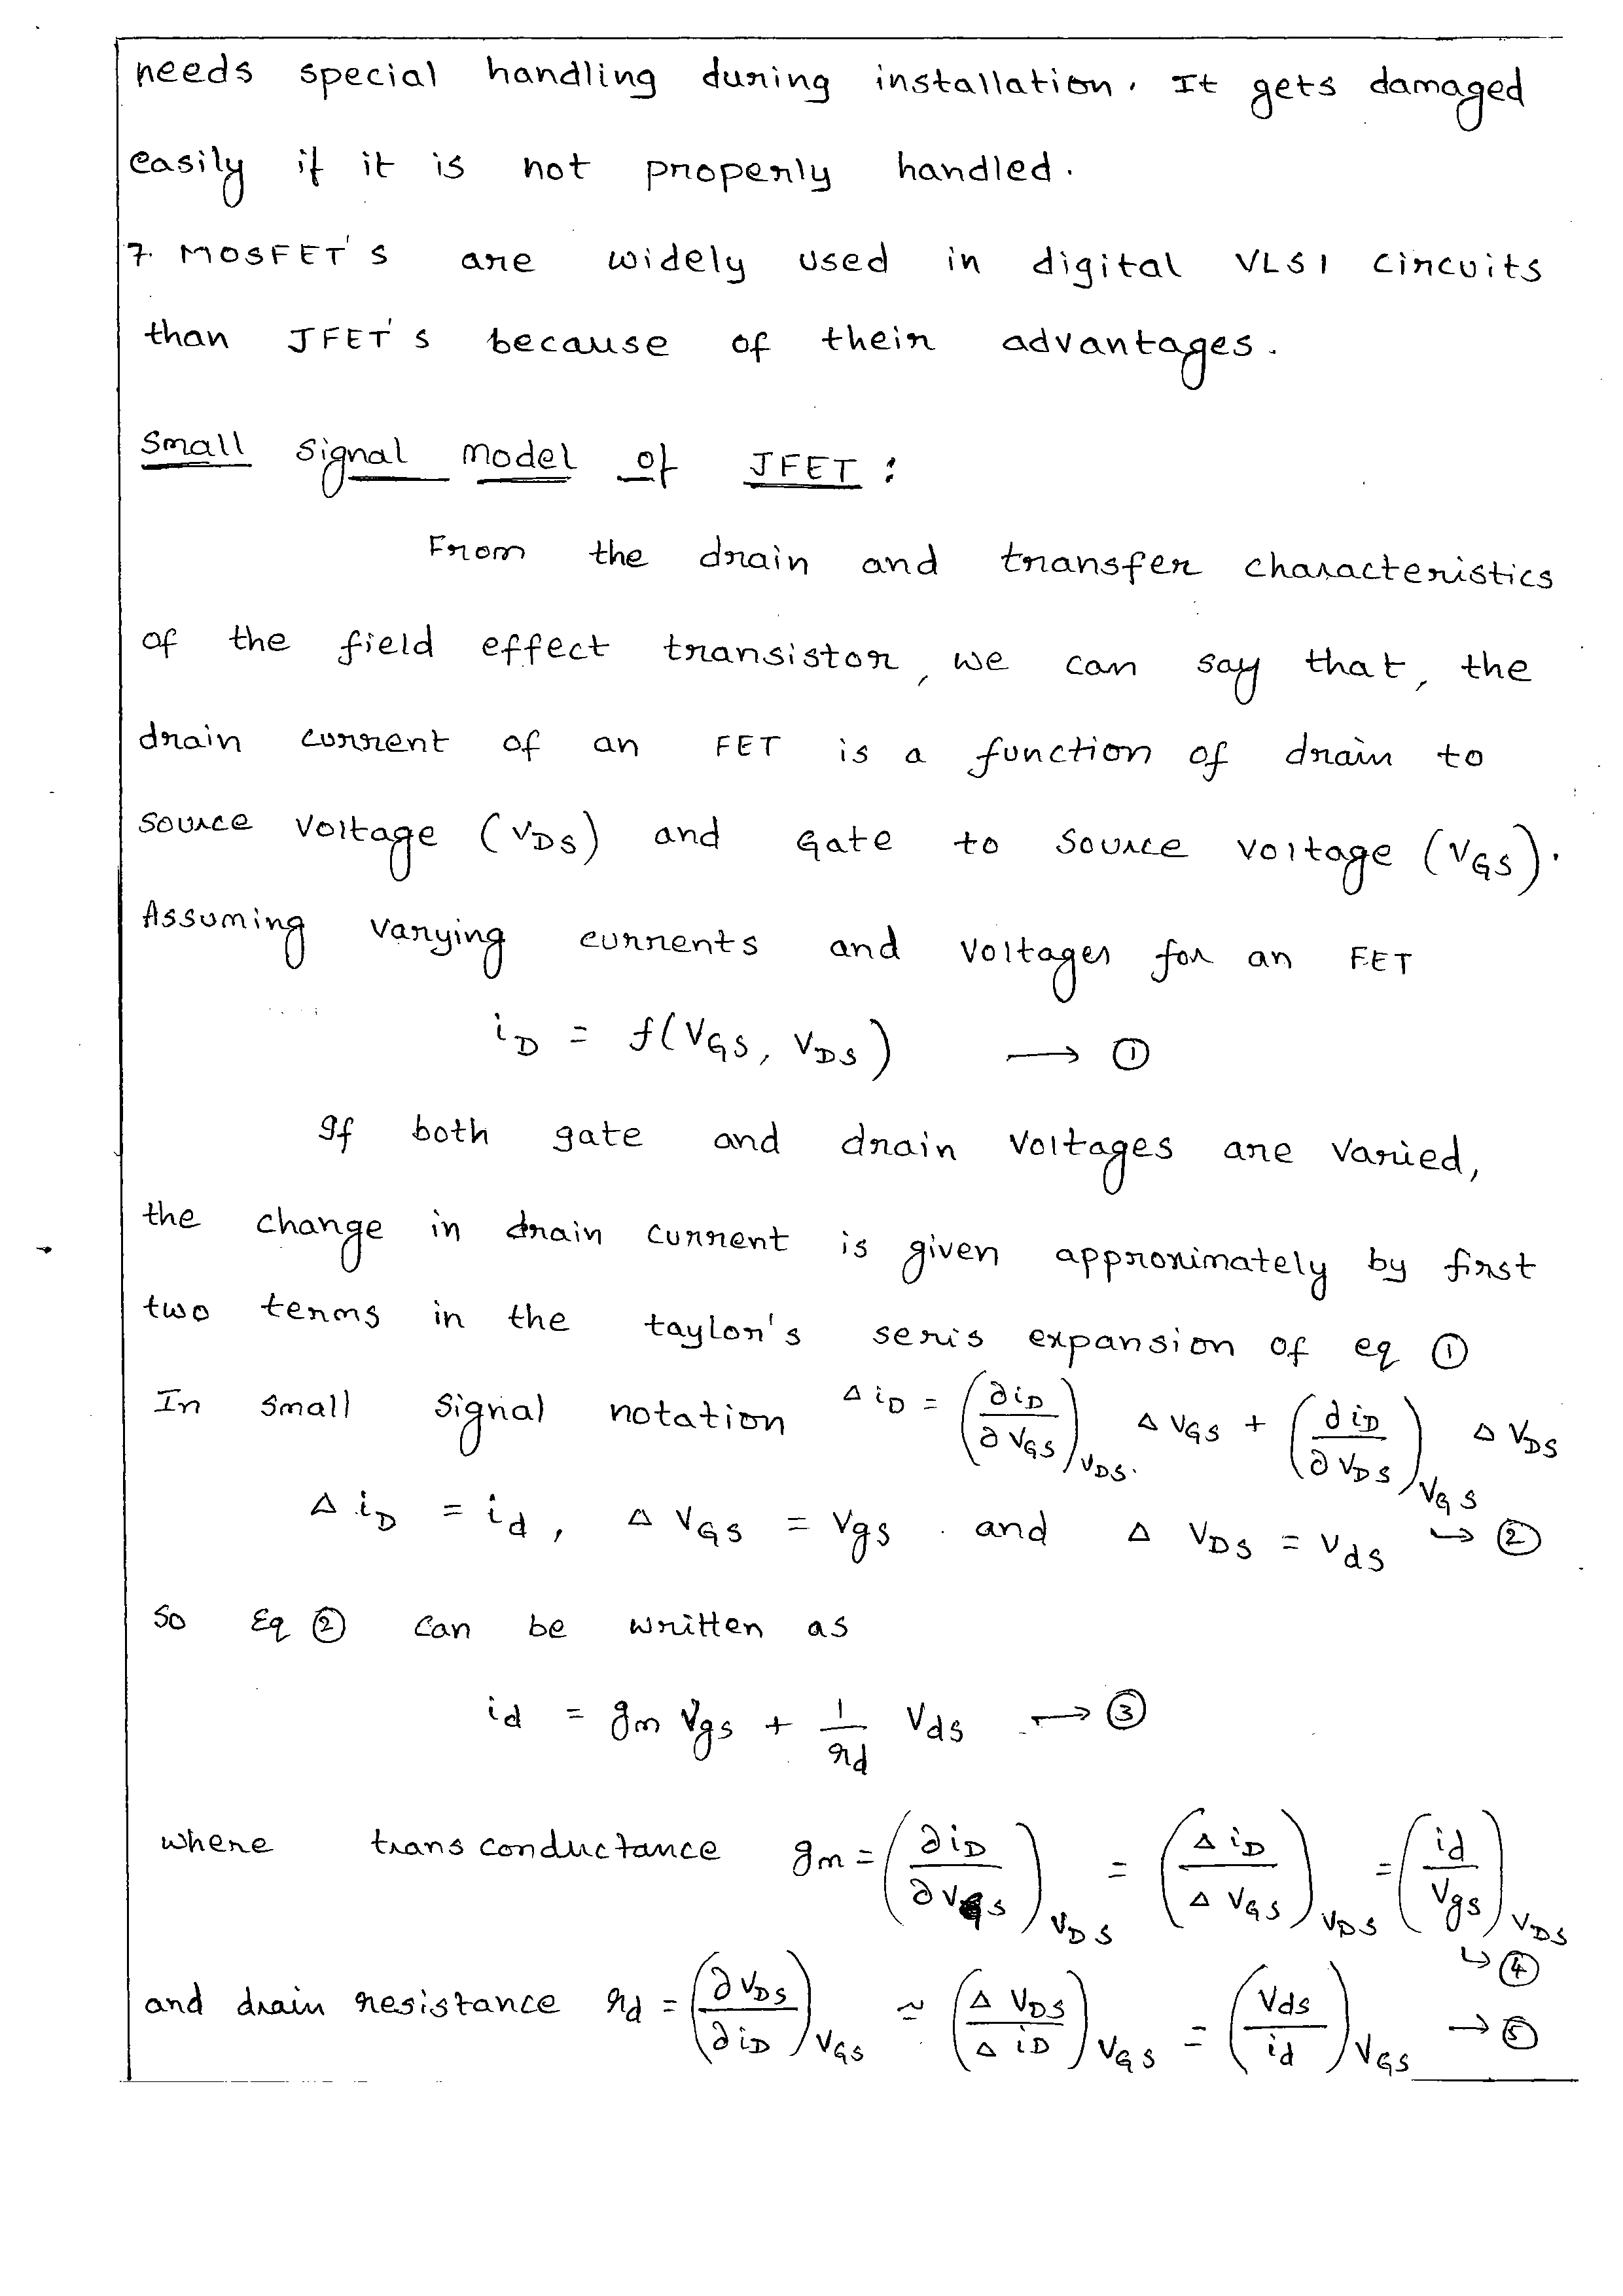 needs special handling during installation. It gets damaged
easily if it is not properly handled.
7. MOSFET'S are widely used in digital VLSI circuits
than JFET'S because of their advantages.
Small signal model of JFET :
From the drain and transfer characteristics
of the field effect transistor, we can say that, the
drain current of an FET is a function of drain to
source voltage (VDS) and Gate to source voltage (VGS).
Assuming varying currents and voltages for an FET
iD = f(VGS, VDS) → ①
If both gate and drain voltages are varied,
the change in drain current is given approximately by first
two terms in the taylor's seris expansion of eq ①
In small signal notation Δ iD = (∂iD / ∂VGS)VDS. Δ VGS + (∂iD / ∂VDS)VGS Δ VDS
Δ iD = id, Δ VGS = Vgs and Δ VDS = Vds → ②
So Eq ② can be written as
id = gm Vgs + 1/rd Vds → ③
where transconductance gm = (∂iD / ∂VGS)VDS = (Δ iD / Δ VGS)VDS = (id / Vgs)VDS ↳ ④
and drain resistance rd = (∂VDS / ∂iD)VGS ≈ (Δ VDS / Δ iD)VGS = (Vds / id)VGS → ⑤